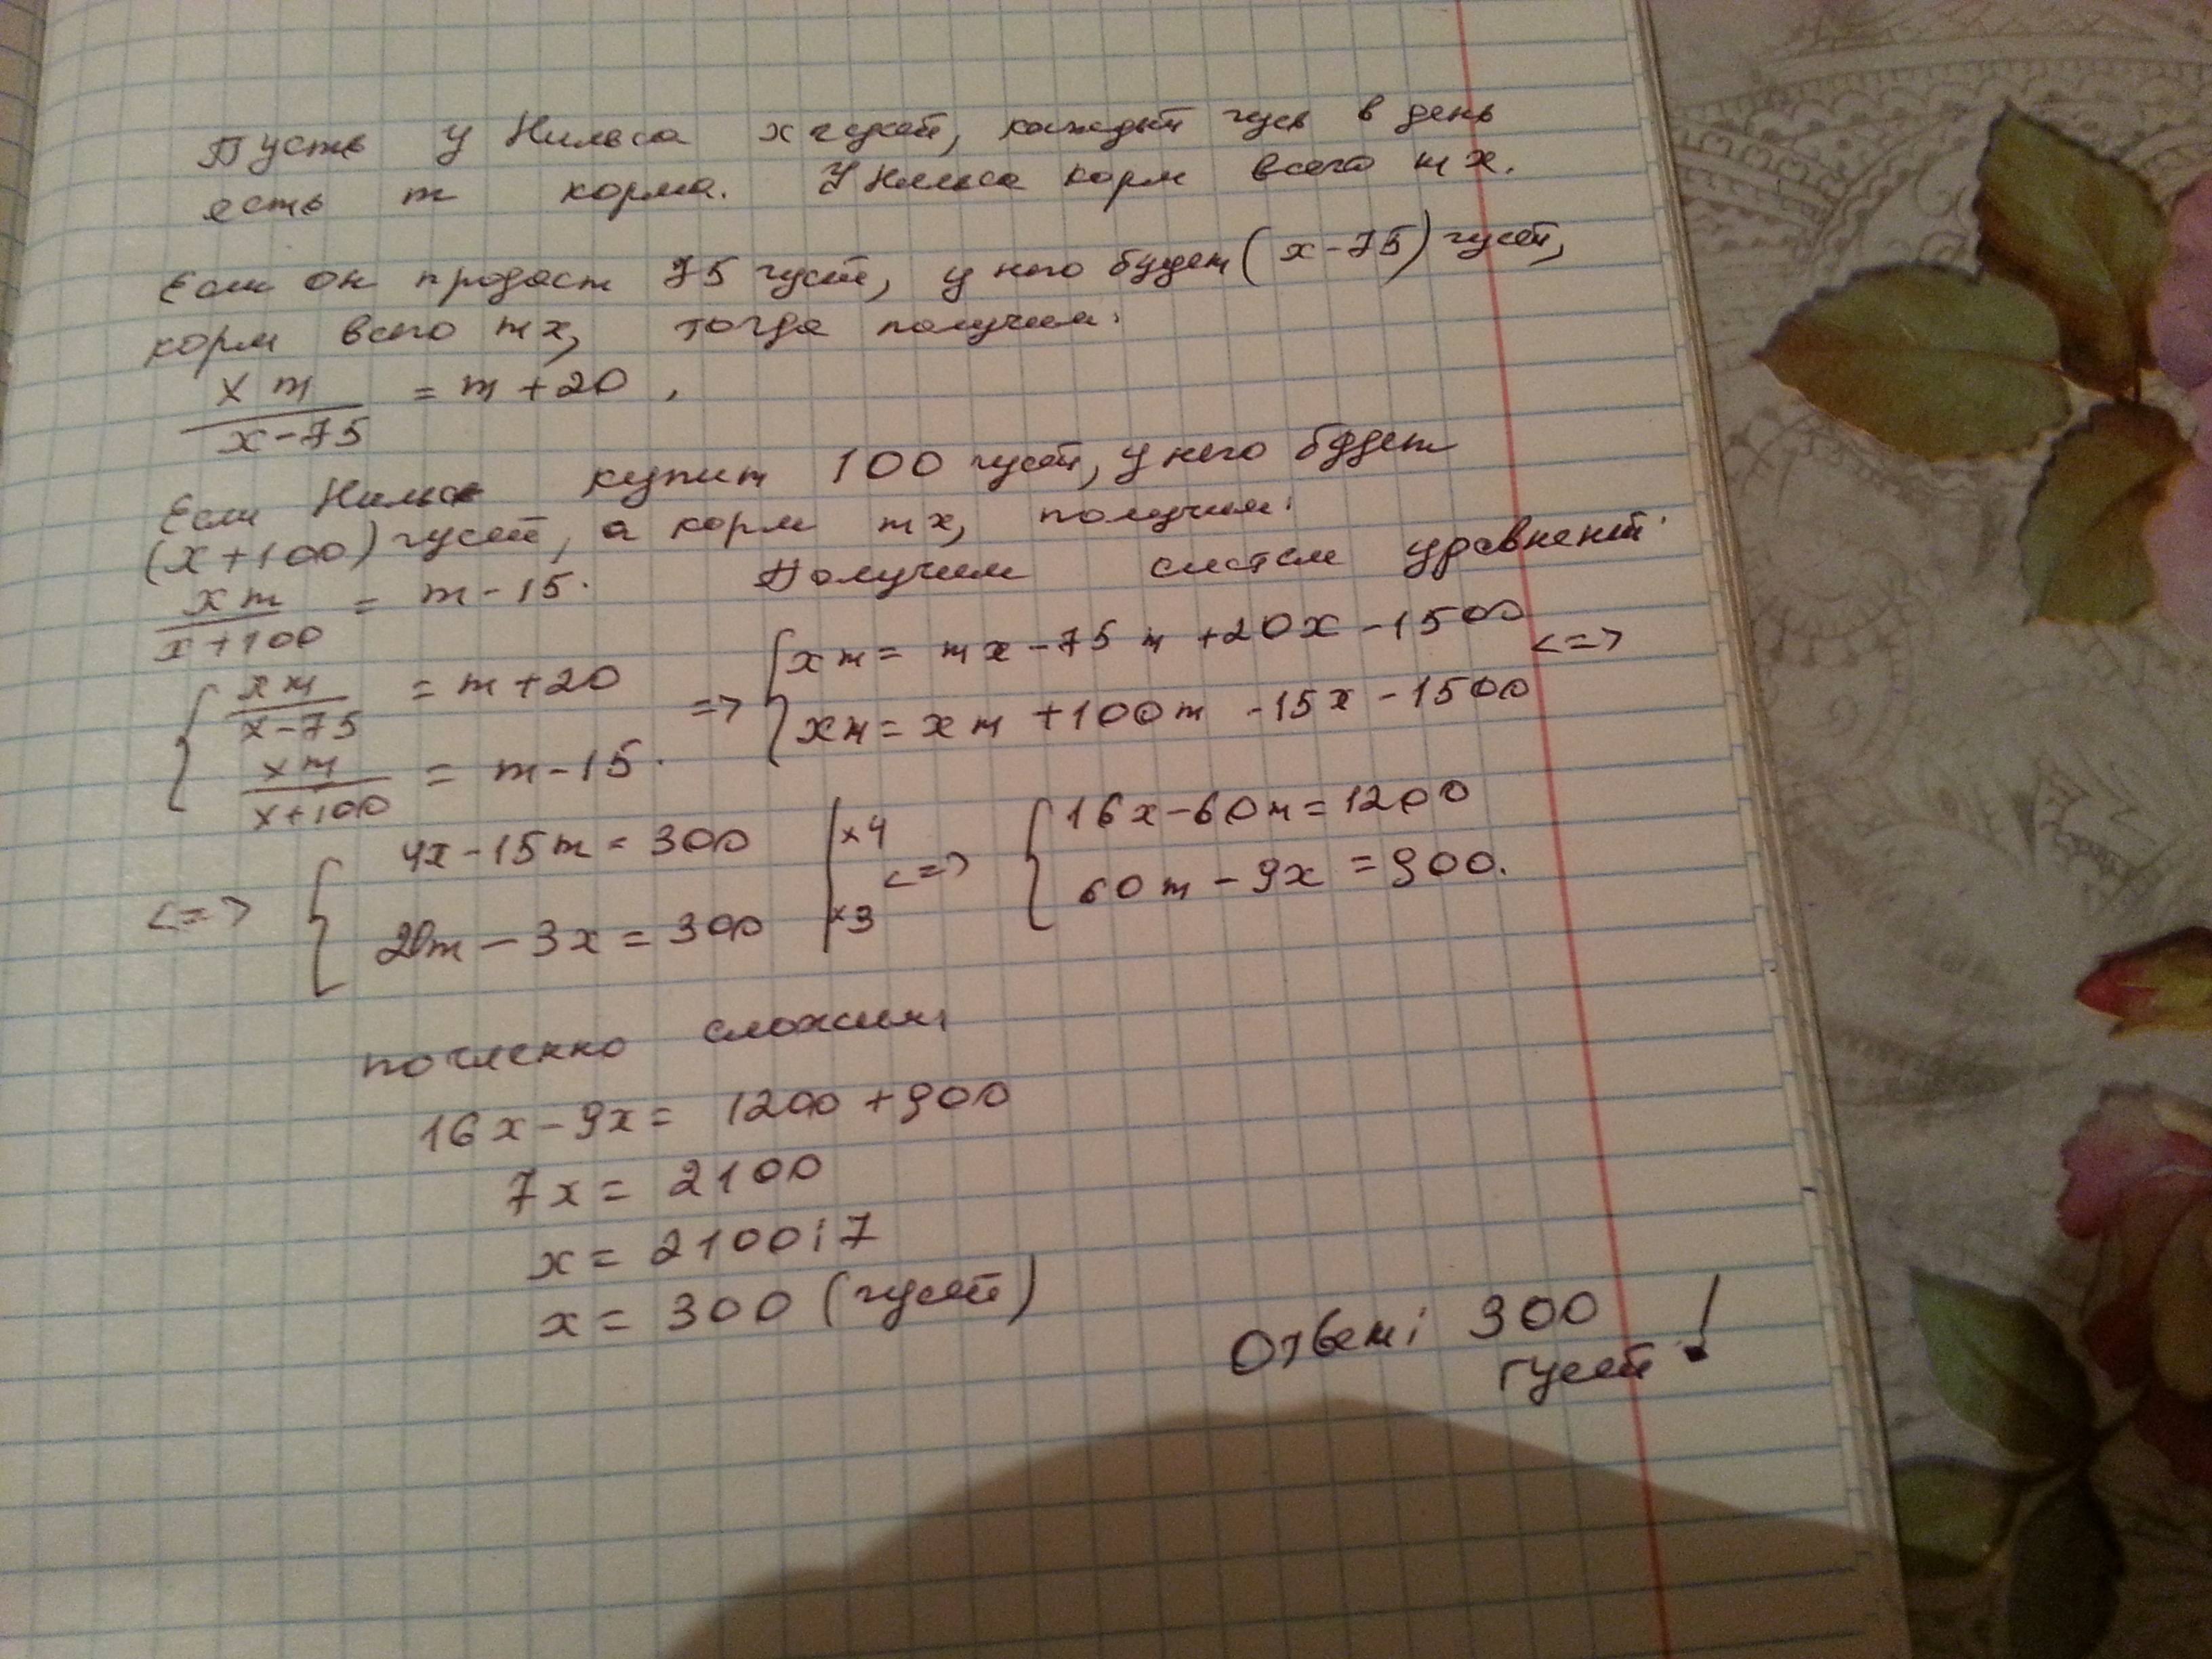 Пусть у Нильса x гусей, каждый гусь в день
есть m корма. У Нильса корм всего mx.
Если он продаст 75 гусей, у него будет (x-75) гусей,
корм всего mx, тогда получим:
xm/(x-75) = m+20,
Если Нильс купит 100 гусей, у него будет
(x+100) гусей, а корм mx, получим:
xm/(x+100) = m-15. Получим систем уравнений:
{ xm/(x-75) = m+20 => { xm = mx-75m+20x-1500 <=>
xm/(x+100) = m-15. xm = xm+100m-15x-1500
<=> { 4x-15m=300 | ×4 <=> { 16x-60m=1200
20m-3x=300 | ×3 60m-9x=900.
почленно сложим:
16x-9x= 1200+900
7x= 2100
x= 2100:7
x= 300 (гусей)
Ответ: 300
гусей!